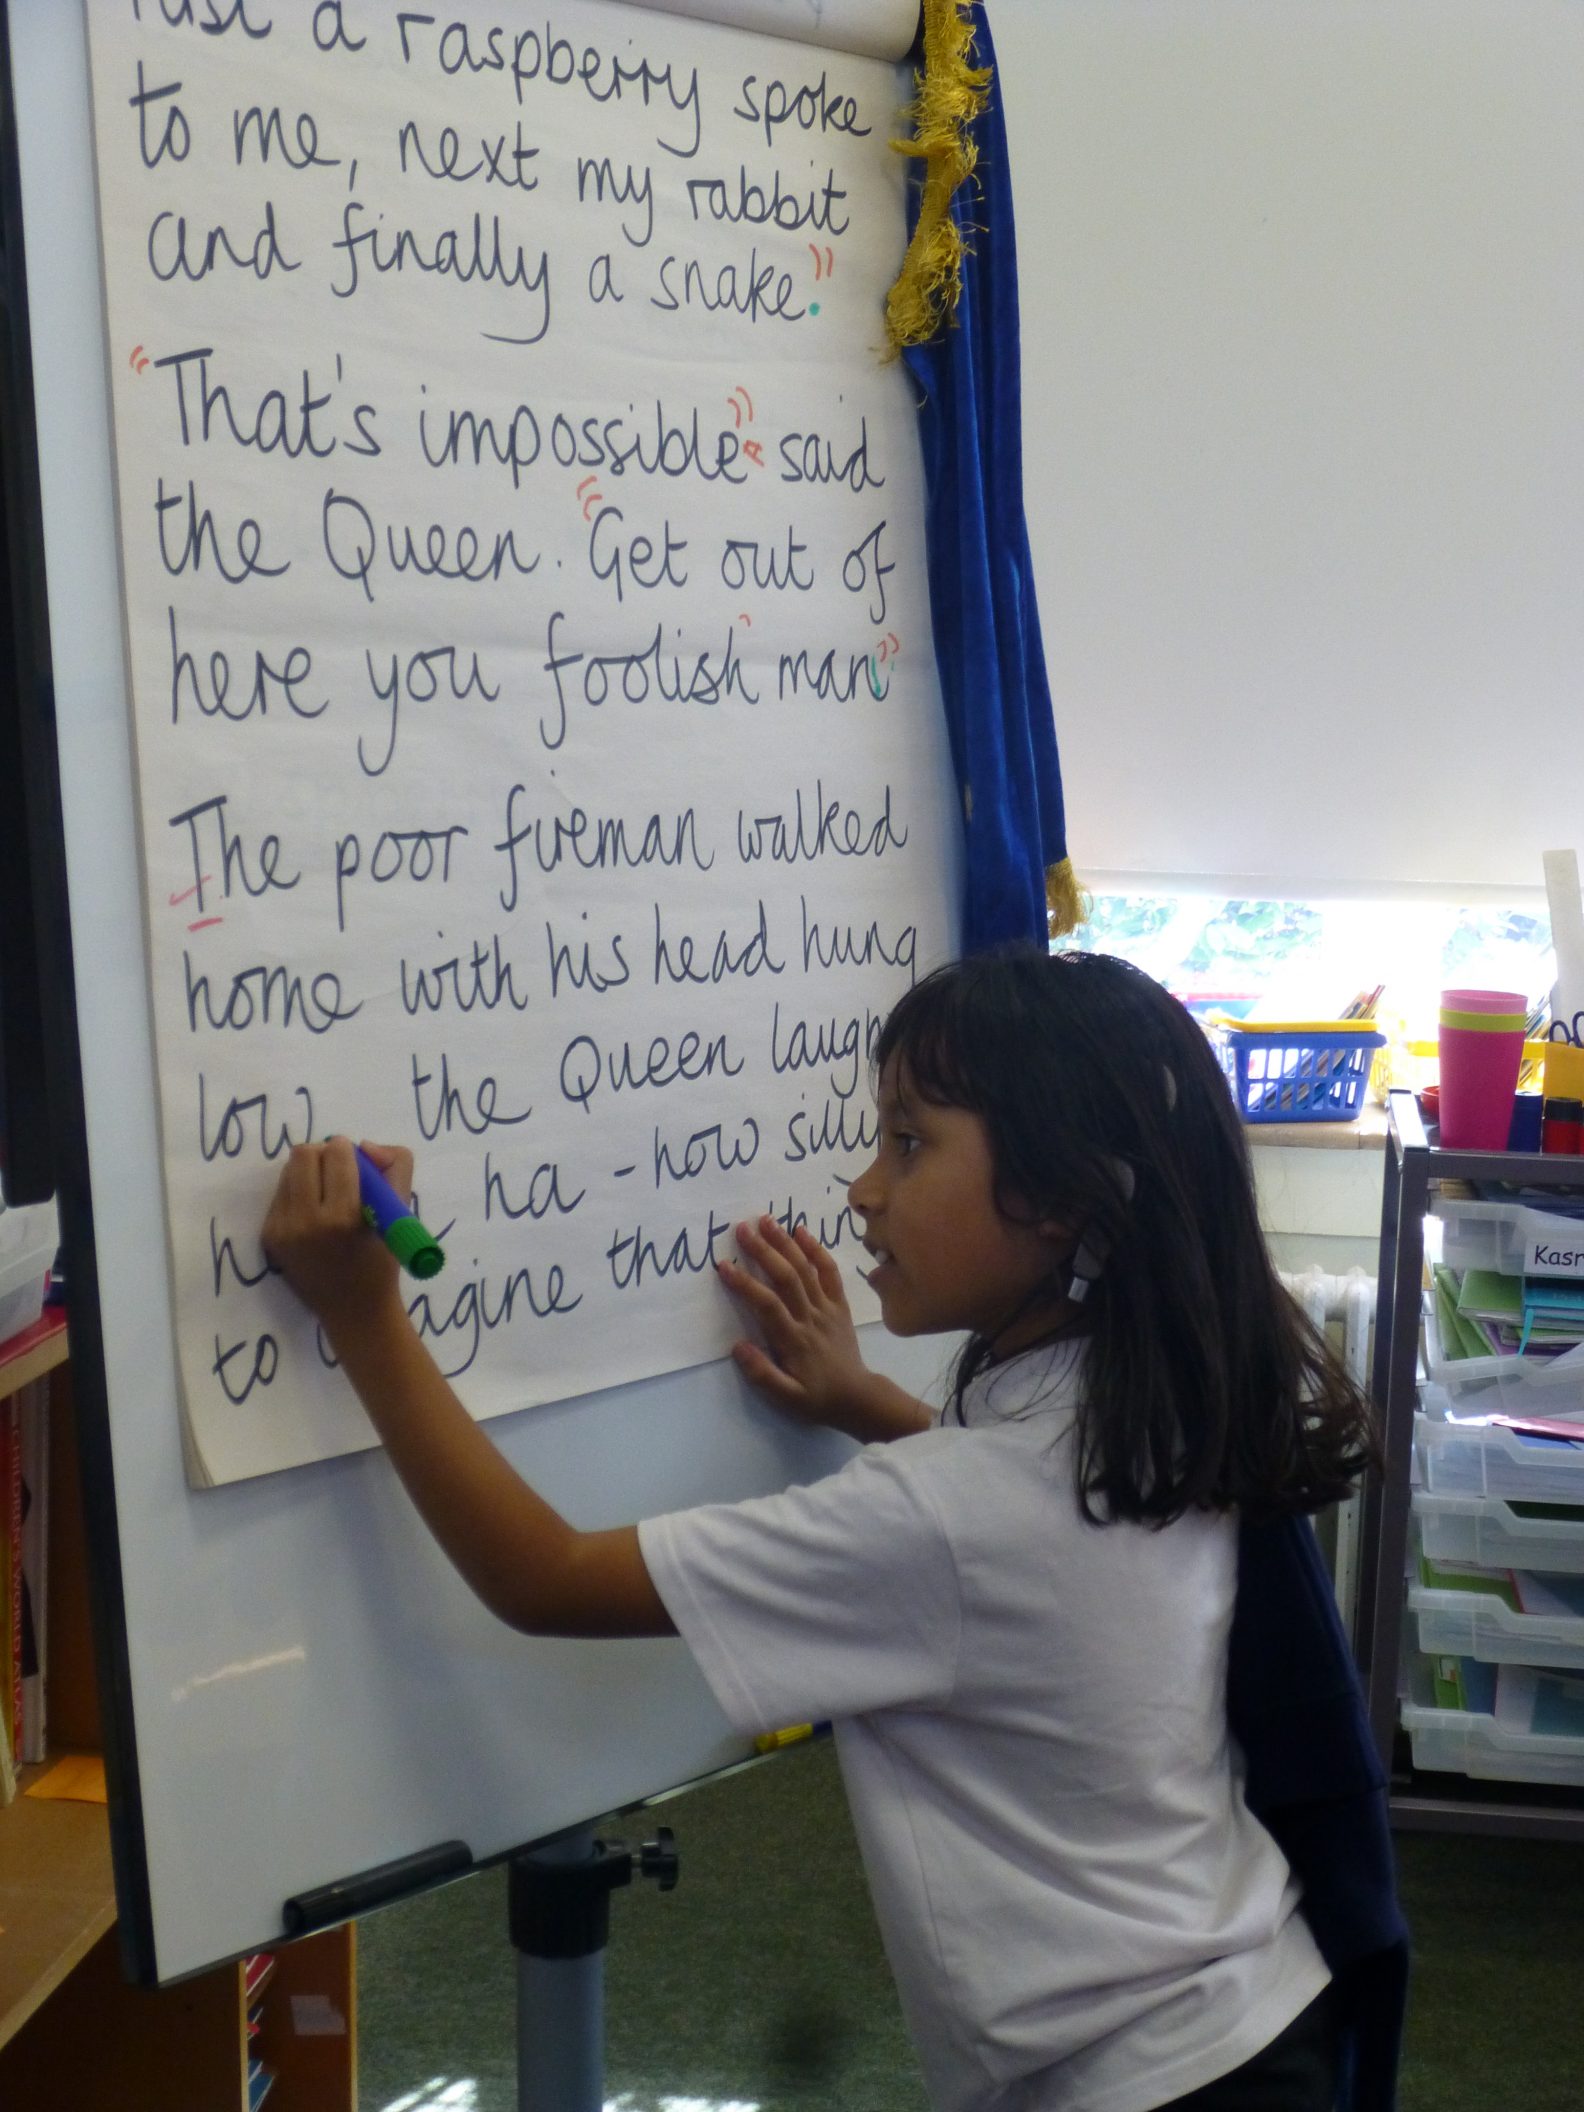 a raspberry spoke
to me, next my rabbit
and finally a snake."
"That's impossible" said
the Queen. "Get out of
here you foolish man"
The poor fireman walked
home with his head hung
low. the Queen
ha - how silly
to that.
Kasr
CHILDREN'S WORLD ATLAS